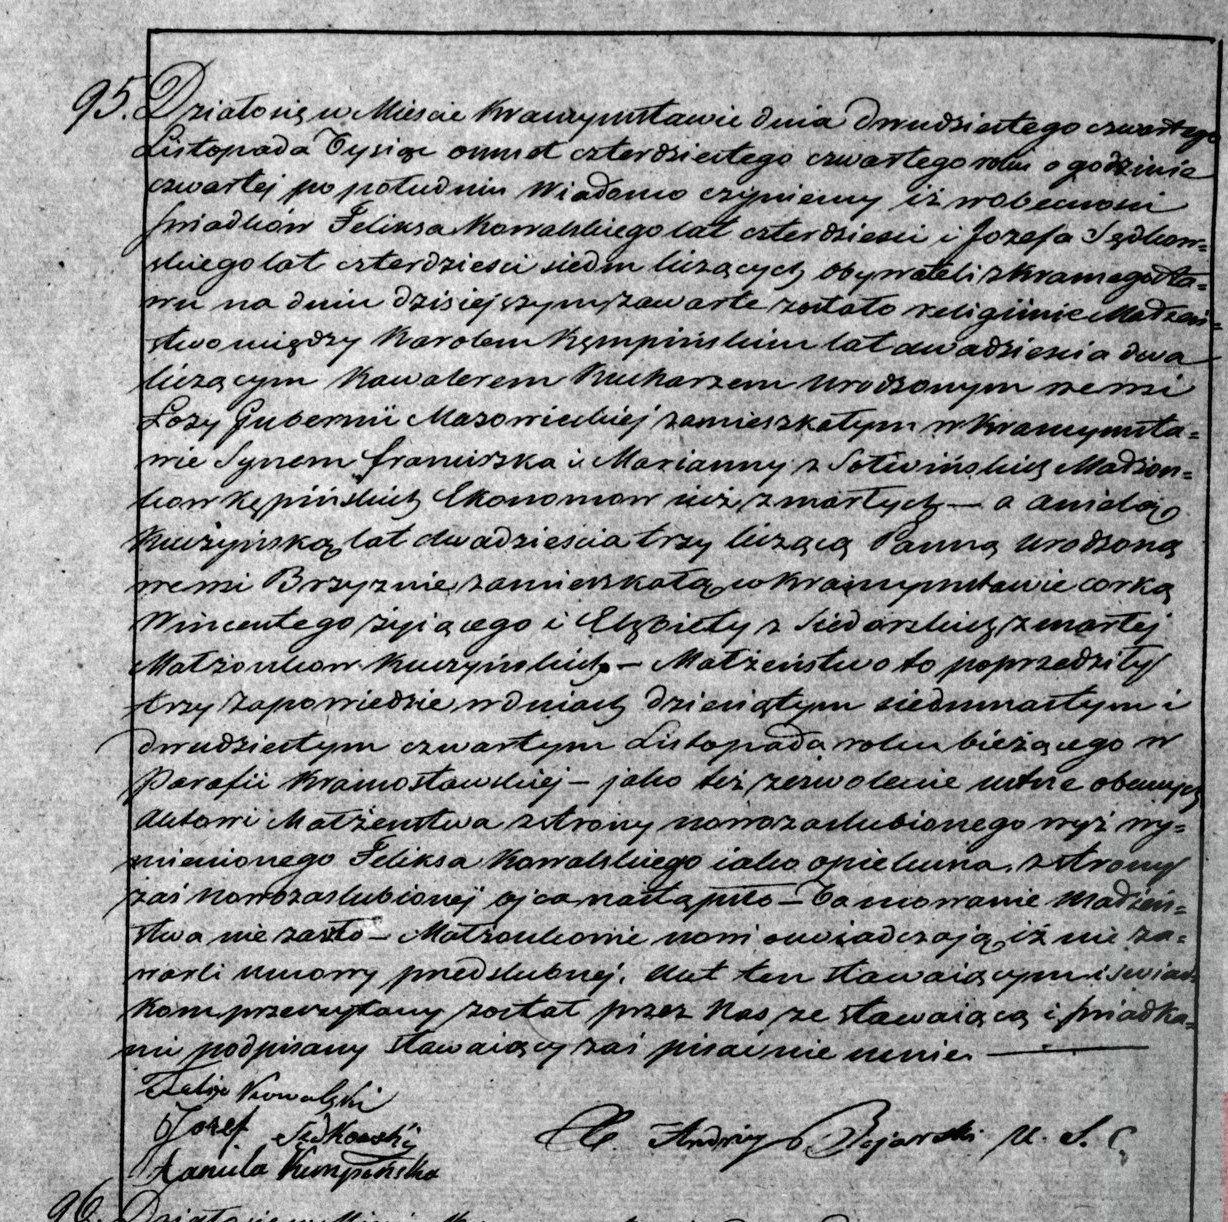 95. Działo się w Mieście Krasnymstawie dnia dwudziestego czwartego
Listopada Tysiąc ośmset czterdziestego czwartego roku o godzinie
czwartej po południu Wiadomo czyniemy iż w obecności
świadków Felixa Kowalskiego lat czterdzieści i Jozefa Sędkow=
skiego lat czterdzieści siedm liczących obywateli z Krasnegosta=
wu na dniu dzisiejszym zawarte zostało religijnie Małżeń=
stwo między Karolem Kępińskim lat dwadzieścia dwa
liczącym Kawalerem Kucharzem urodzonym we wsi
Łozy Gubernii Mazowieckiej zamieszkałym w Krasnymsta=
wie Synem Franciszka i Marianny z Małżon=
kow Kępińskich Ekonomow już zmarłych — a Anielą
Kuczyńską lat dwadzieścia trzy liczącą Panną urodzoną
we wsi zamieszkałą w Krasnymstawie corką
Wincentego żyiącego i Elżbiety z zmarłej
Małżonkow Kuczyńskich. — Małżeństwo to poprzedziły
trzy zapowiedzie w dniach dziesiątym siedmnastym i
dwudziestym czwartym Listopada roku bieżącego w
Parafii Krasnostawskiej — jako też zezwolenie ustne obecnych
Aktowi Małżenstwa z strony nowozaslubionego wyż wy=
mienionego Felixa Kowalskiego iako opiekuna, z strony
zaś nowozaslubionej ojca nastąpiło — Tamowanie Małżeń=
stwa nie zaszło — Małżonkowie nowi oswiadczają iż nie za=
warli umowy przedslubnej. Akt ten stawaiącym i swiad=
kom przeczytany został przez Nas ze stawaiącą i świadka=
mi podpisany stawaiący zaś pisać nie umie. —
Felix Kowalski
Jozef Sędkowski
X. Andrzey Bojarski U. S. C.
Aniela Kempińska
96. Działo się w Mieście